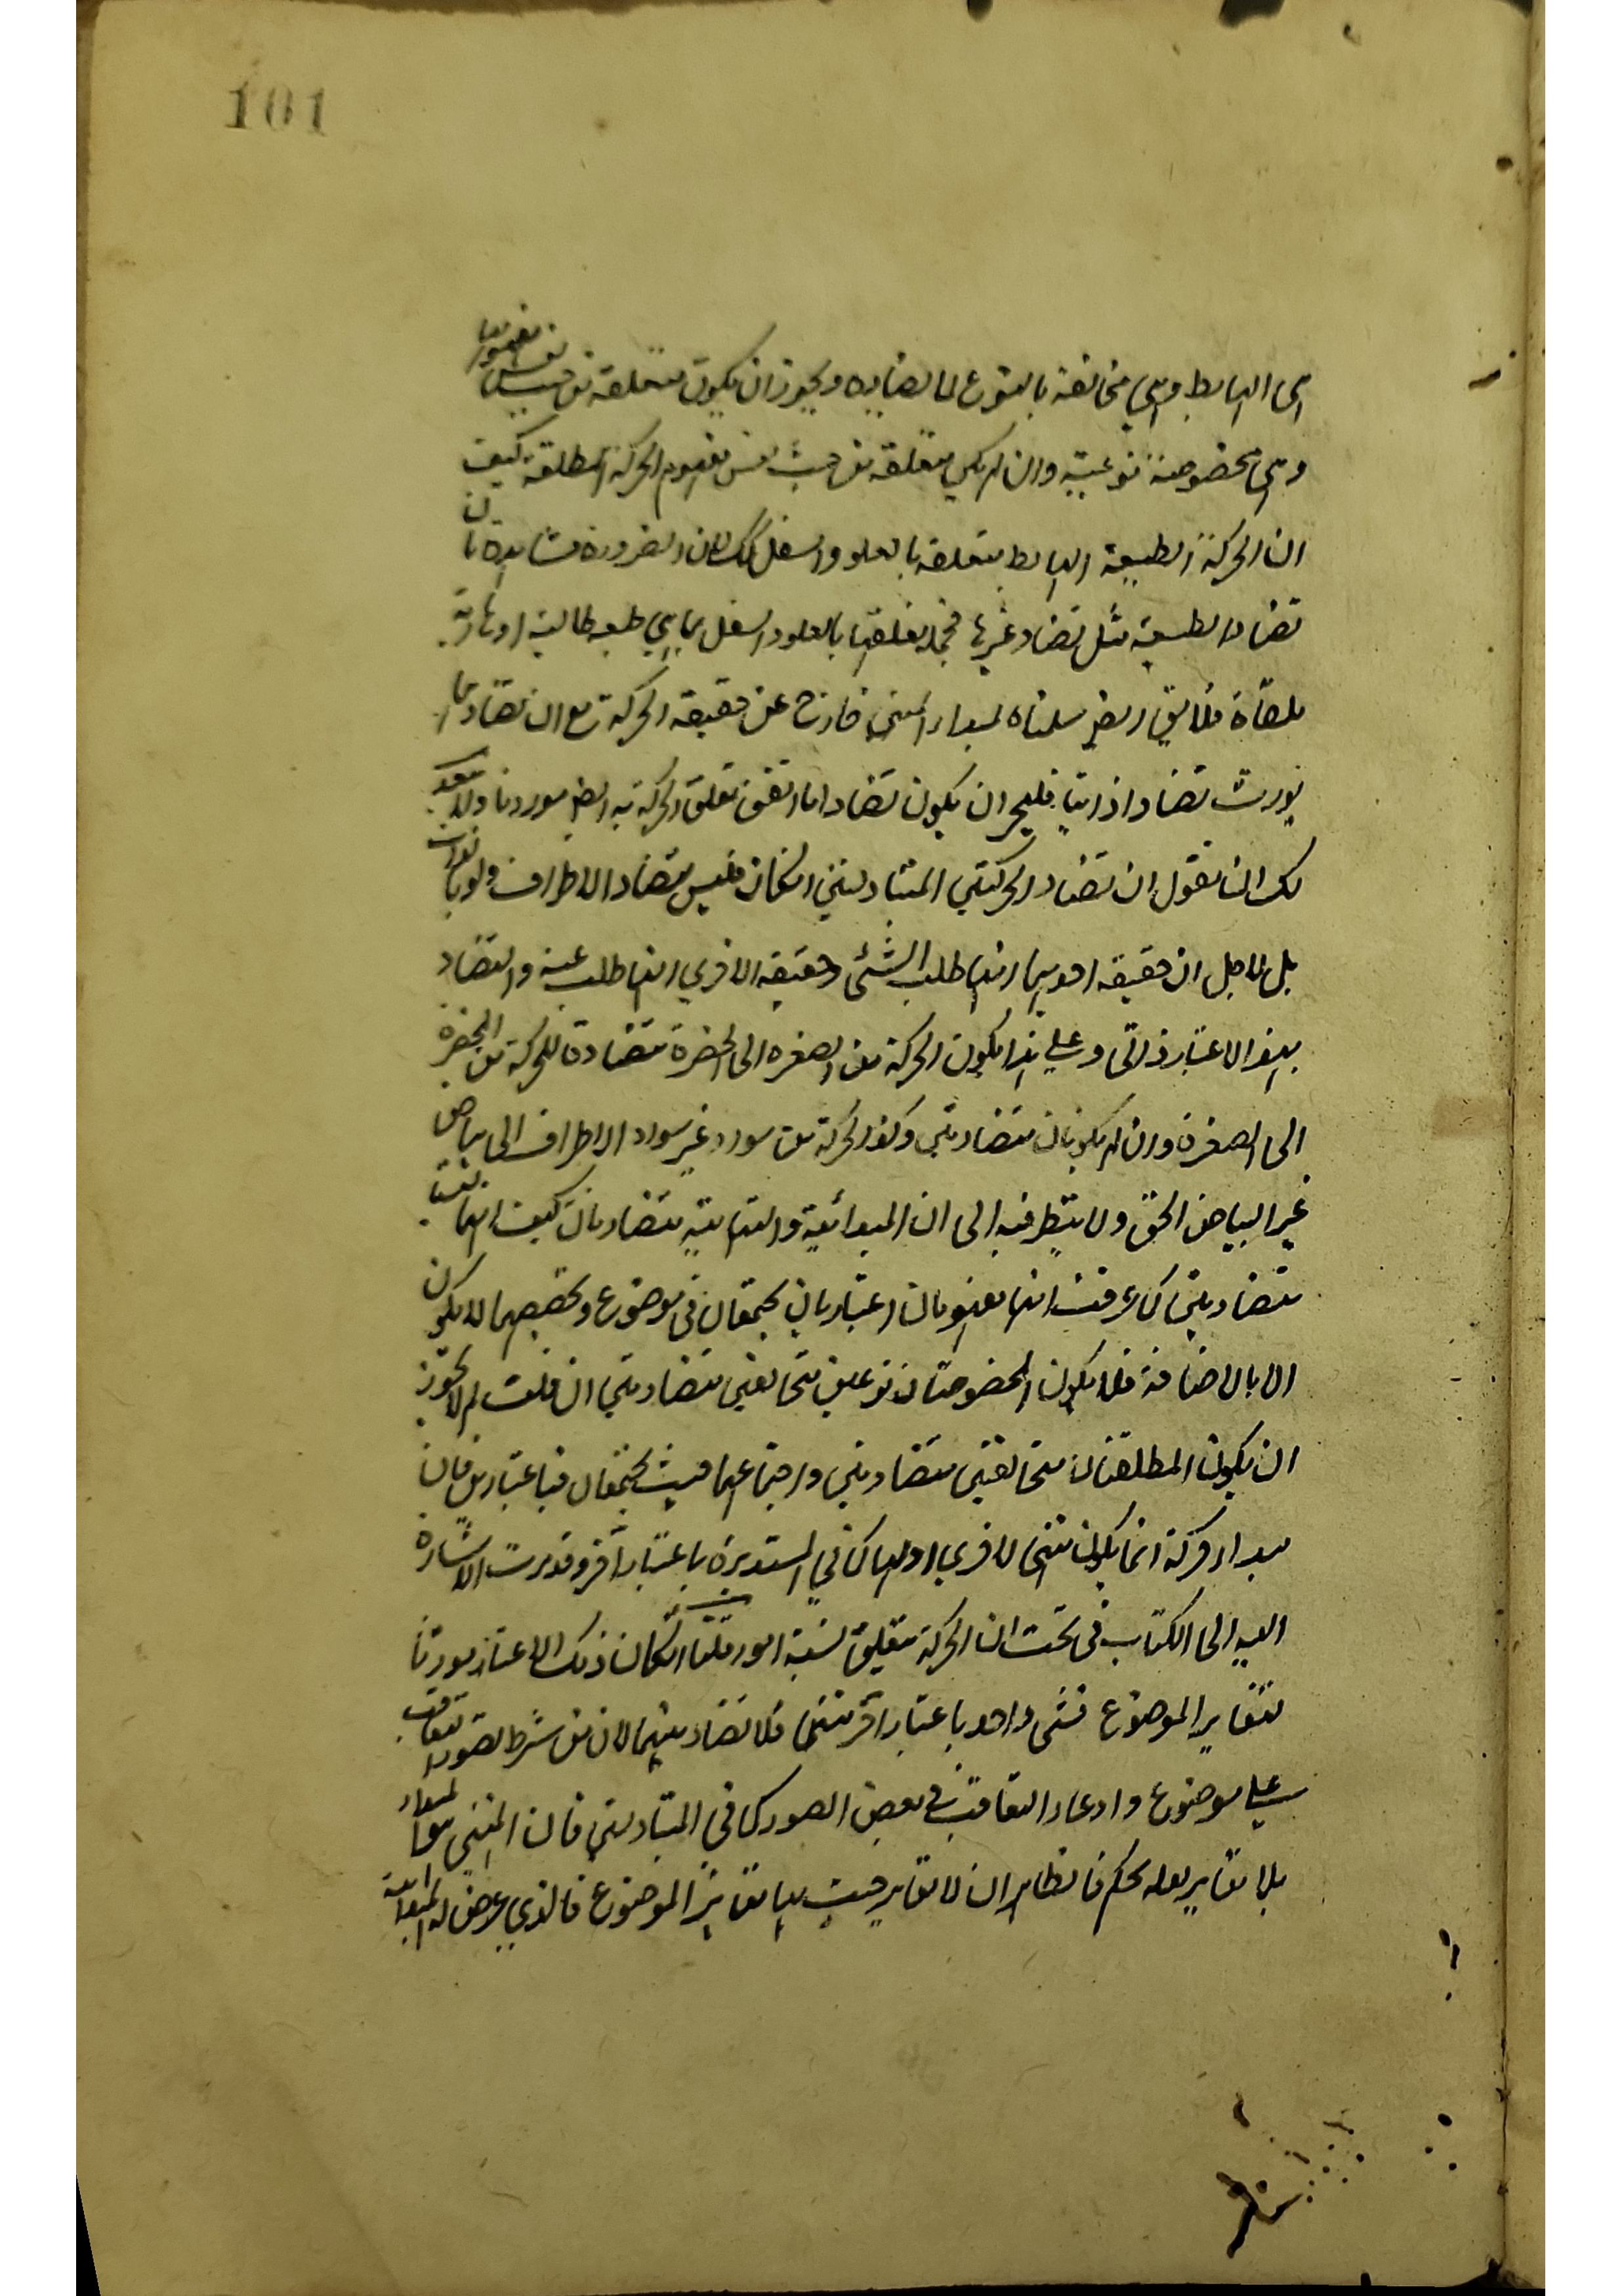 101
الى الهابط وهي مخالفة بالنوع لما يضاده ويجوز ان يكون متعلقة من حيث نفس مفهومها
وهي مخصوصة نوعية وان لم يكن متعلقة من حيث نفس مفهوم الحركة المطلقة كيف
ان الحركة الطبيعية الهابط متعلقة بالعلو والسفل لك لان الضرورة شاهدة بان
تضاد الطبيعية مثل تضاد غيرها فجملة تعلقها بالعلو والسفل بما هي طبيعة طالبة او هاربة
ملغاة فلا يق ايض سلمناه لمبداء المنتهى خارج عن حقيقة الحركة مع ان تضادهما
يورث تضادا ذاتيا فليجز ان يكون تضاد اما اتفق تعلق الحركة به ايض موردنا ولا يبعد
لك ان نقول ان تضاد الحركتين المتبادلتين انكان فليس بتضاد الاطراف ولو بالعرض
بل لاجل ان حقيقة احديهما انها طلب الشئ وحقيقة الاخرى انها طلب عنه والتضاد
بهذا الاعتبار ذاتى وعلى هذا يكون الحركة من الصفرة الى الخضرة متضادة للحركة من الخضرة
الى الصفرة وان لم يكونان متضادين وكذا الحركة من سواد غير سواد الاطراف الى بياض
غير البياض الحق ولا ينظر فيه الى ان المبدائية والنهايتية متضادتان كيف انهما ليستا
متضادين كما عرفت انهما مفهومان اعتباريان يجتمعان فى موضوع وتخصيصهما لا يكون
الا بالاضافة فلا يكون المخصوصتان نوعين متخالفين متضادين ان قلت لم لا يجوز
ان يكون المطلقتان متخالفتين متضادتين واجتماعهما حيث يجتمعان فباعتبارين فان
مبداء حركة انما يكون منتهى لاخرى او لها كما في المستديرة باعتبار آخر وقد مرت الاشارة
اليه الى الكتاب فى تحت ان الحركة متعلق لستة امور قلنا انكان ذلك الاعتبار مورثا
لتغاير الموضوع فشئ واحد باعتبار آخر منتهى فلا تضاد بينهما لان من شرط التضاد التعاقب
على موضوع وادعاء التعاقب فى بعض الصور كما فى المتبادلتين فان المنتهى مبداء
بلا تغاير بعله تحكم فالظاهر ان لا تغاير حيث بها تغاير الموضوع فالذي يعرض له المبدائية